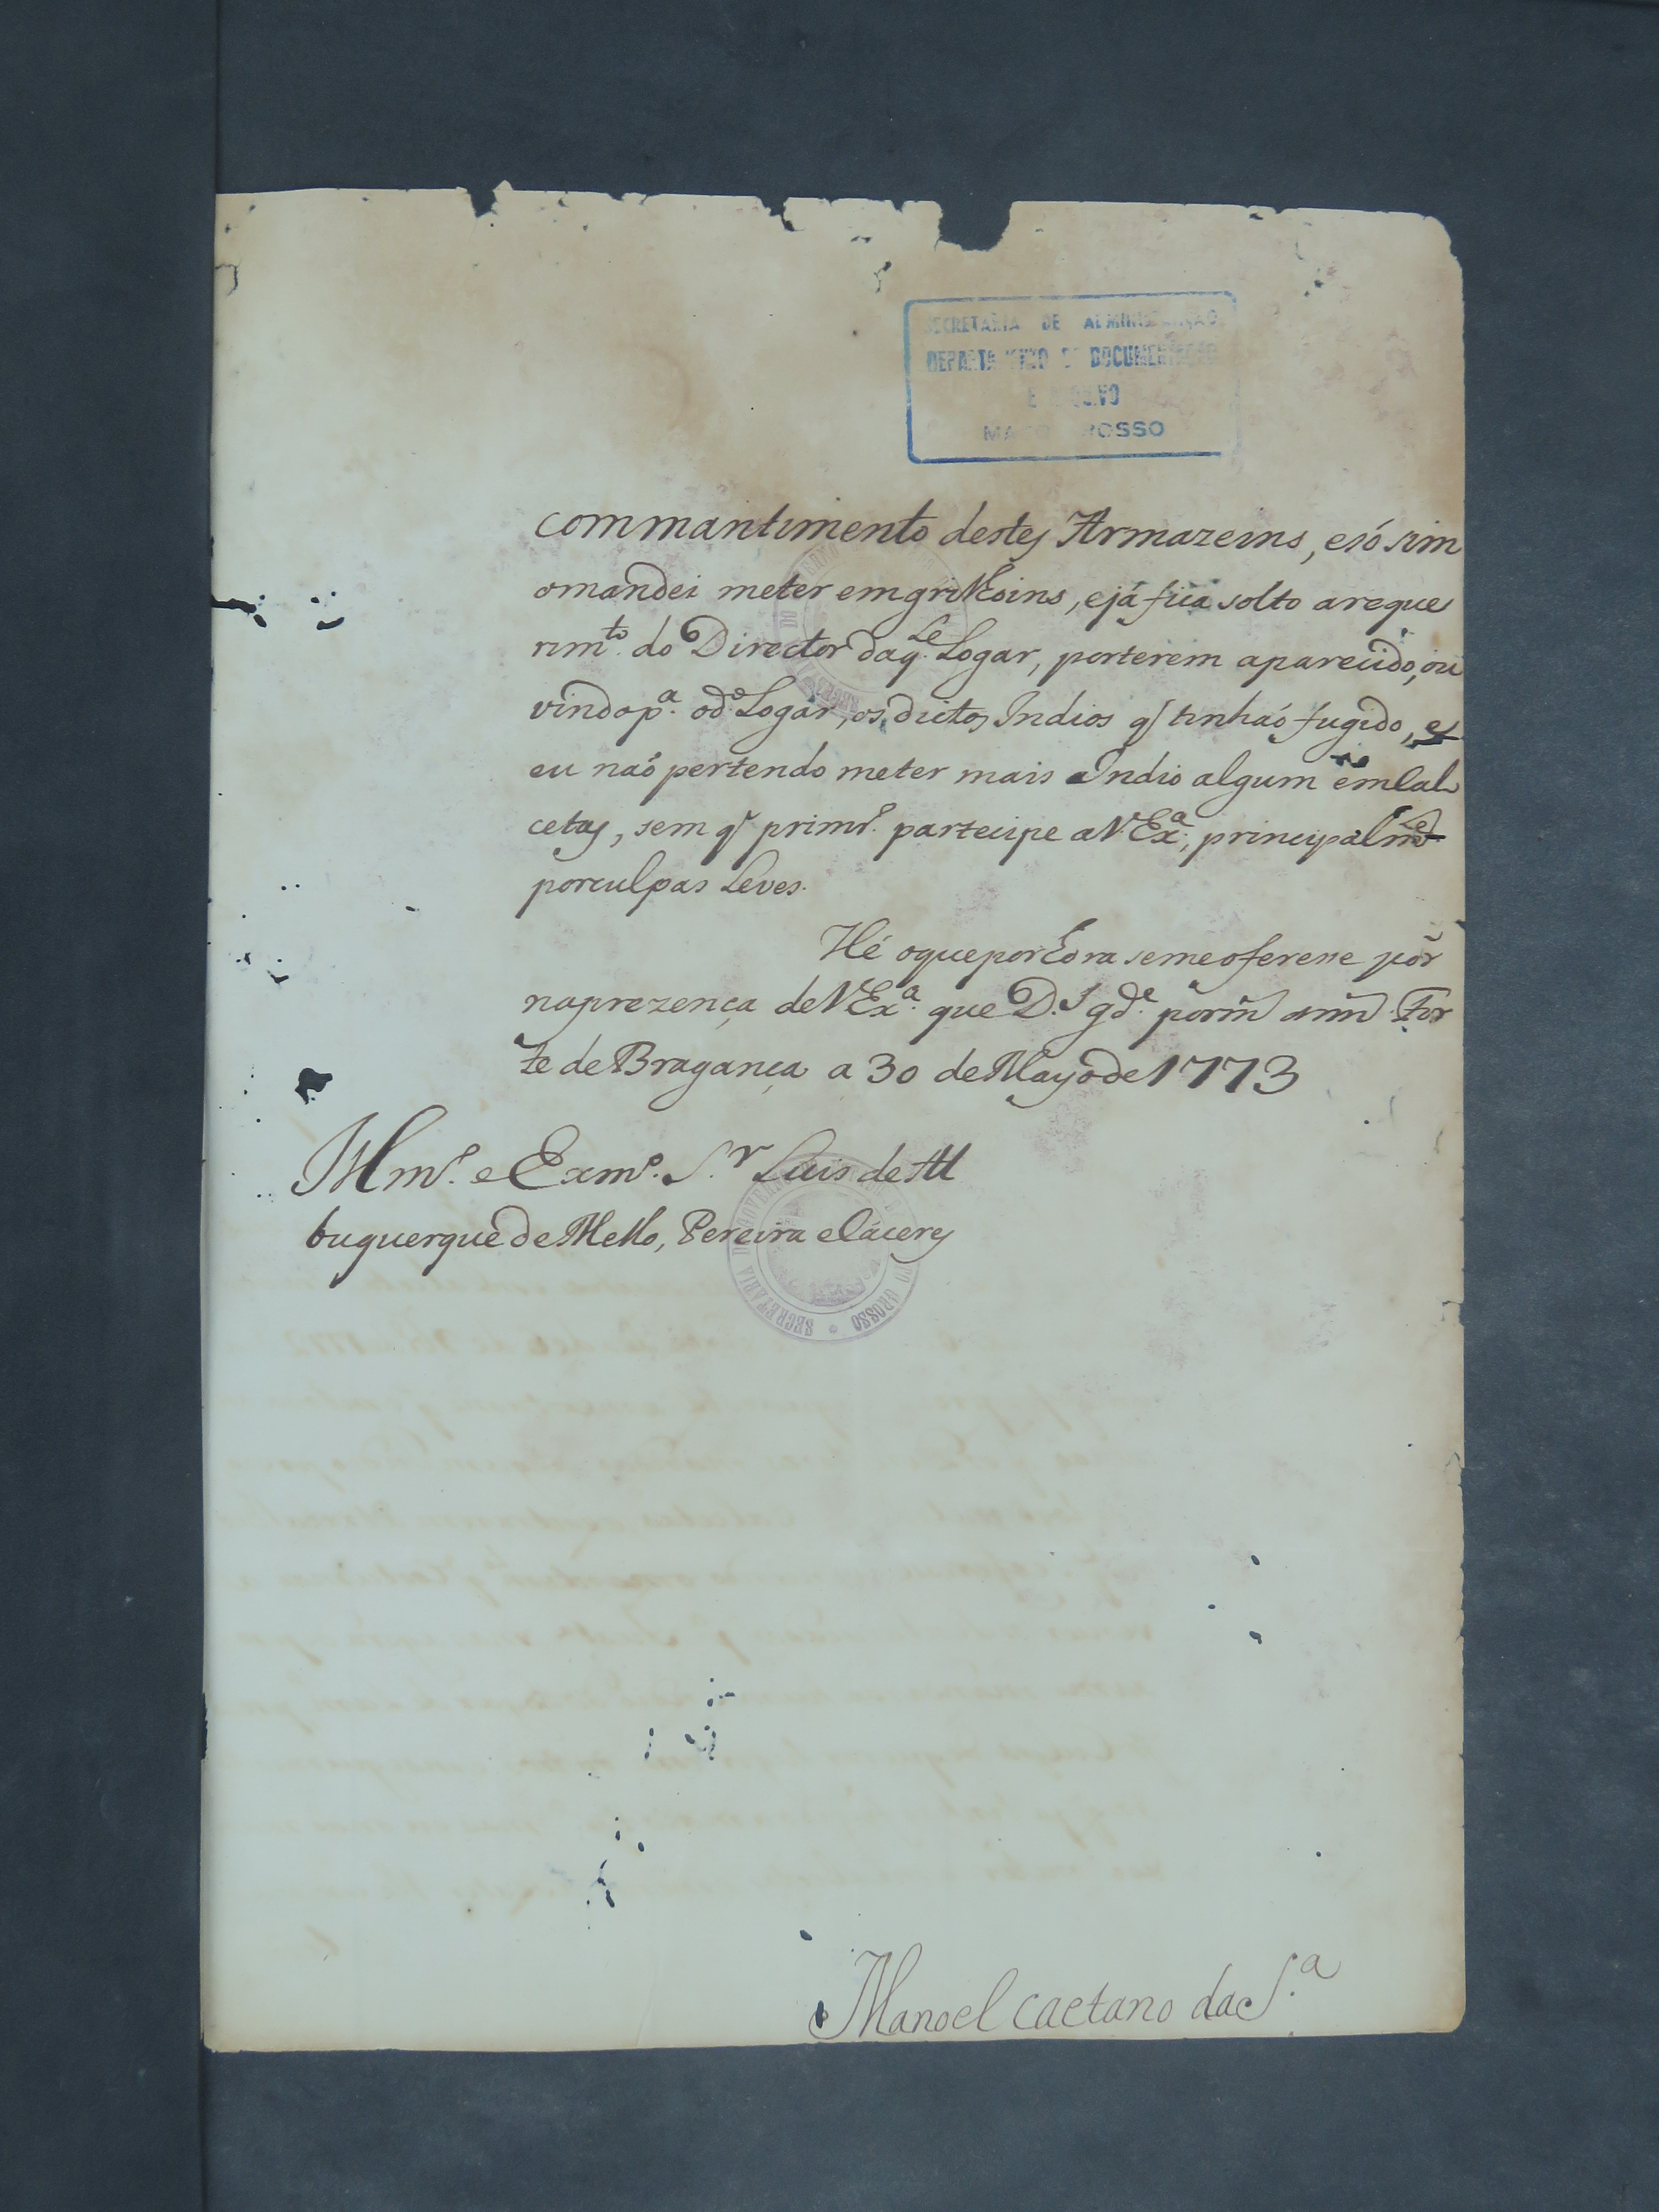 SECRETARIA DE ADMINISTRAÇÃO
DEPARTAMENTO DE DOCUMENTAÇÃO
E ARQUIVO
MATO GROSSO
commantimento destes Armazeins, esó sim
omandei meter emgrilhoins, ejá fica solto areque
rimto. do Director daqle. Logar, porterem aparecido, ou
vindopa. odo. Logar, os dictos Indios q tinhaó fugido, e
eu naó pertendo meter mais Indio algum emCal
cetas, sem q primo. partecipe aVExa., principalmte
porculpas Leves.
Hé oqueporhora semeoferesse por
naprezença deVExa. que D.s gde. porm ann For
te de Bragança a 30 de Mayo de 1773
Illmo. e Exmo. S.r Luis de Al
buquerque de Mello, Pereira eCáceres
SECRETARIA DO GOVERNO GROSSO
Manoel Caetano da S.a